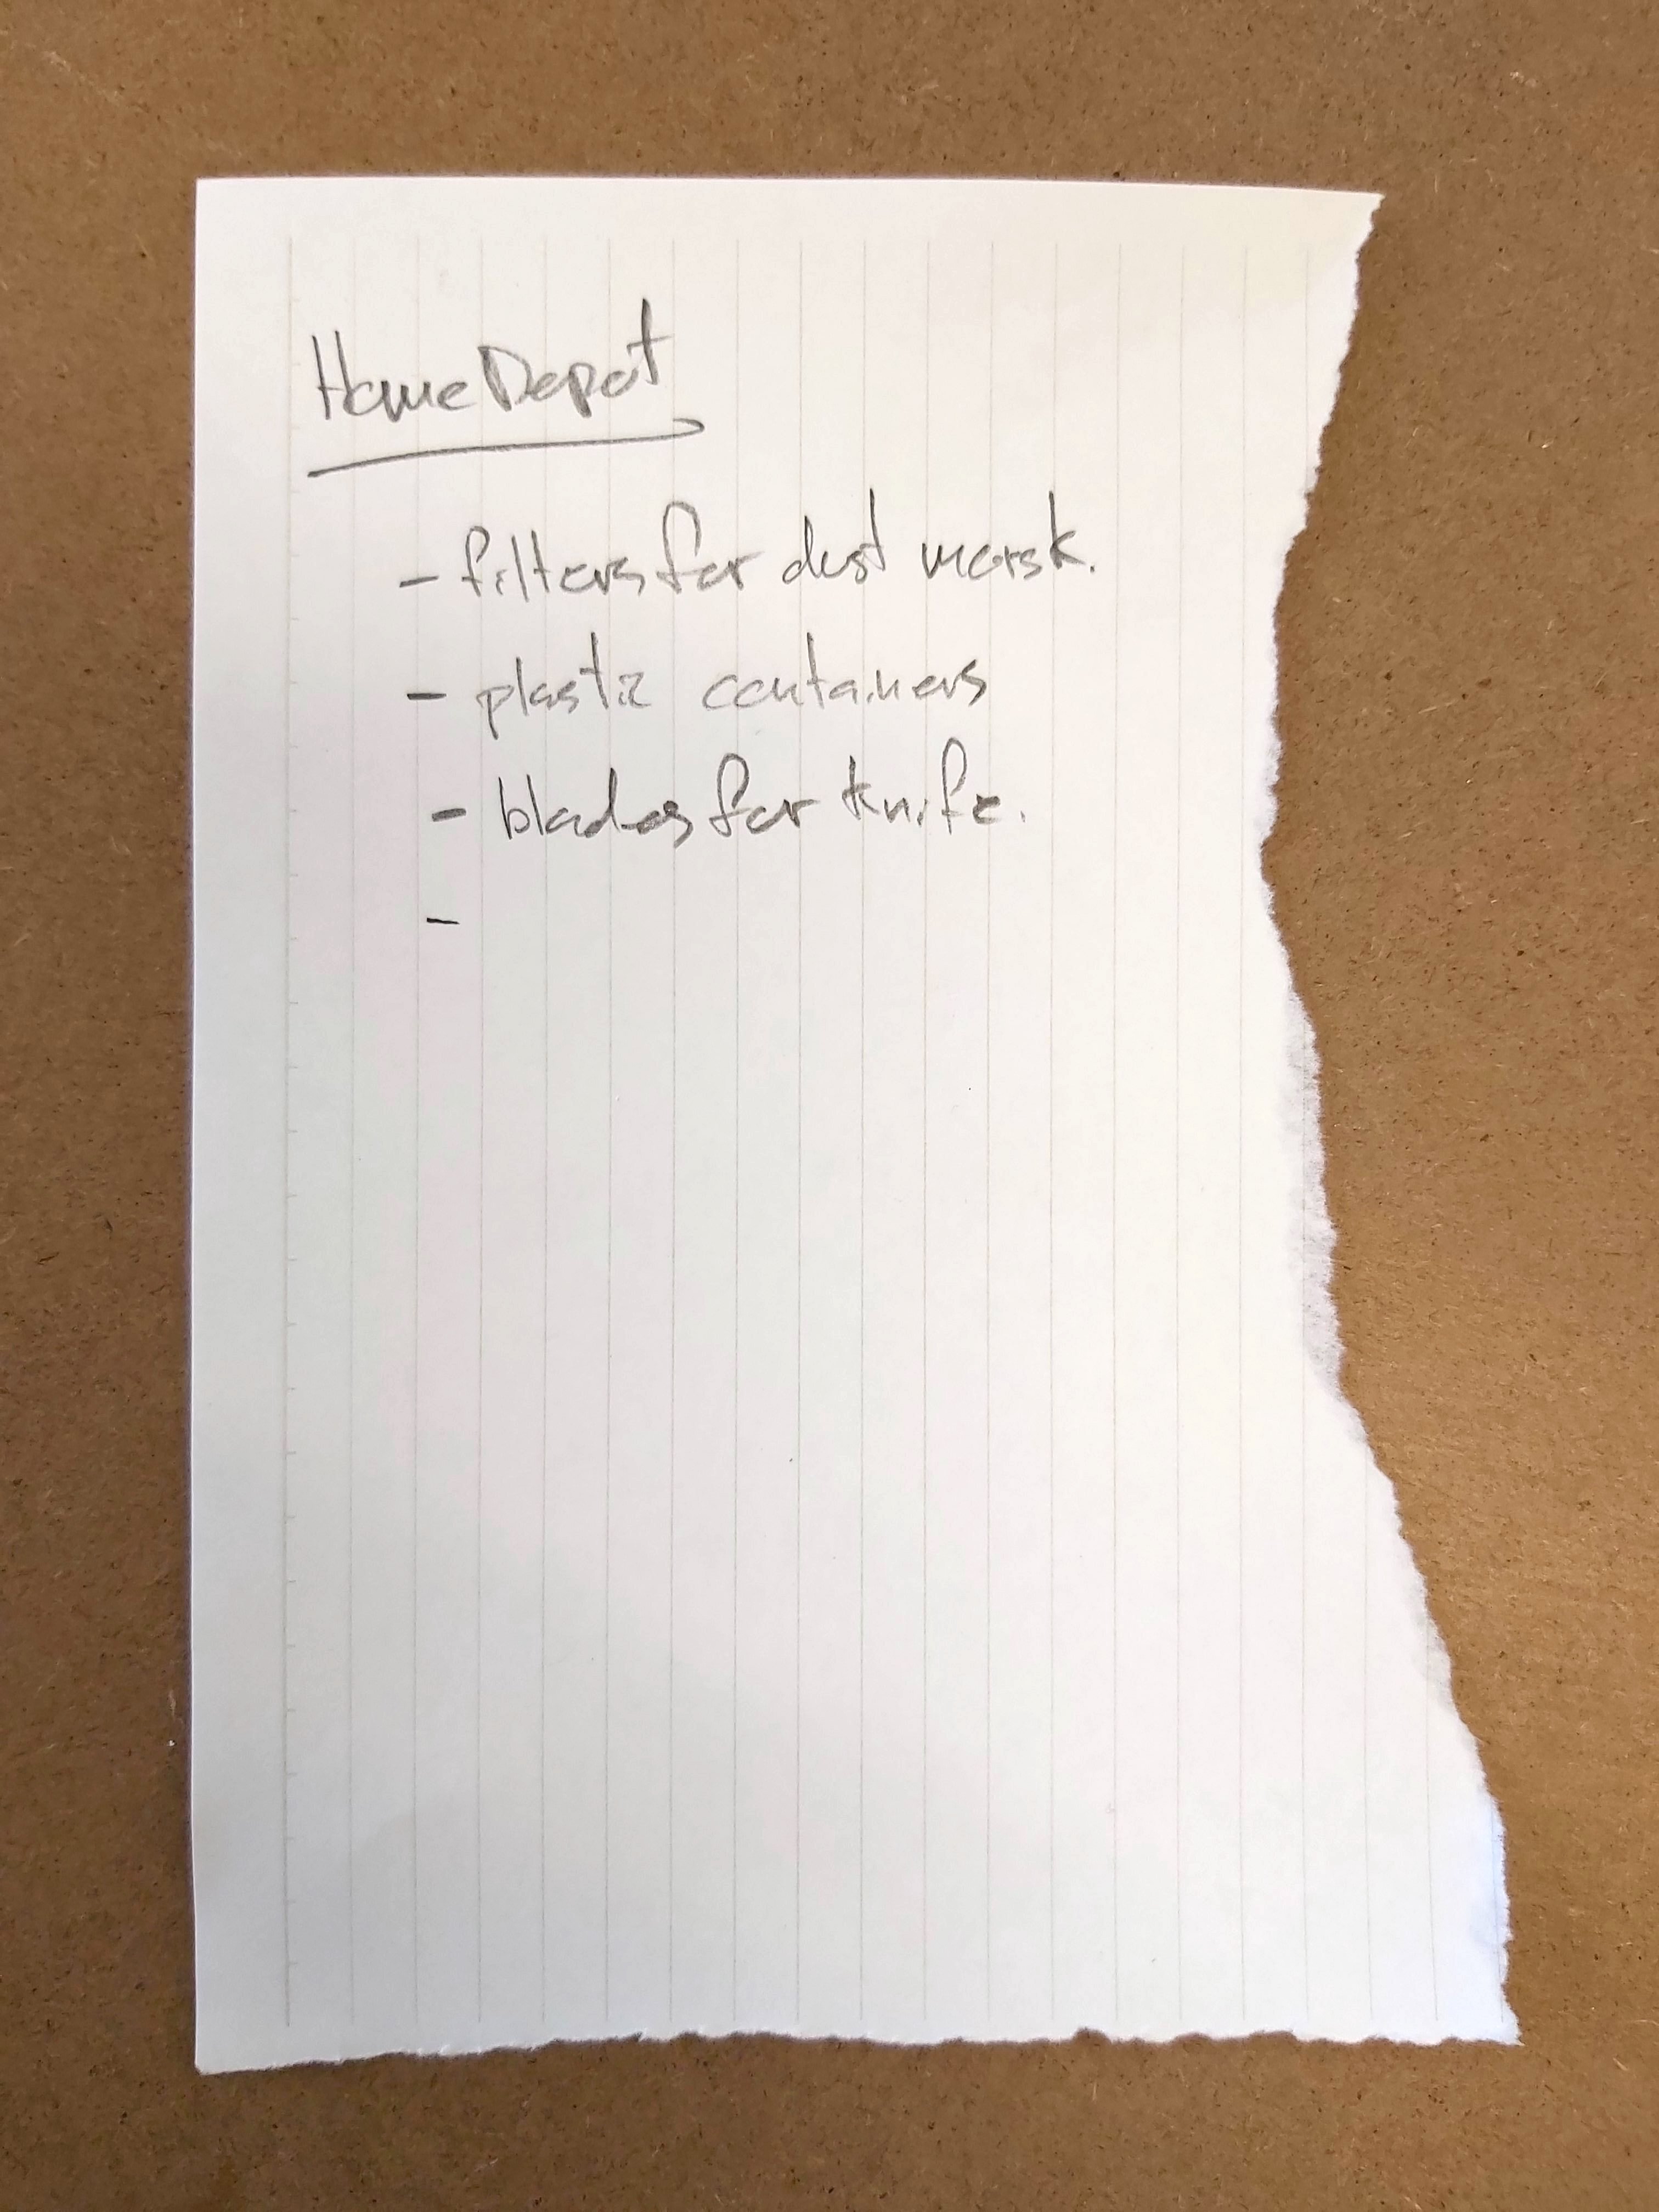 Home Depot
- filters for dust mask.
- plastic containers
- blades for knife.
-